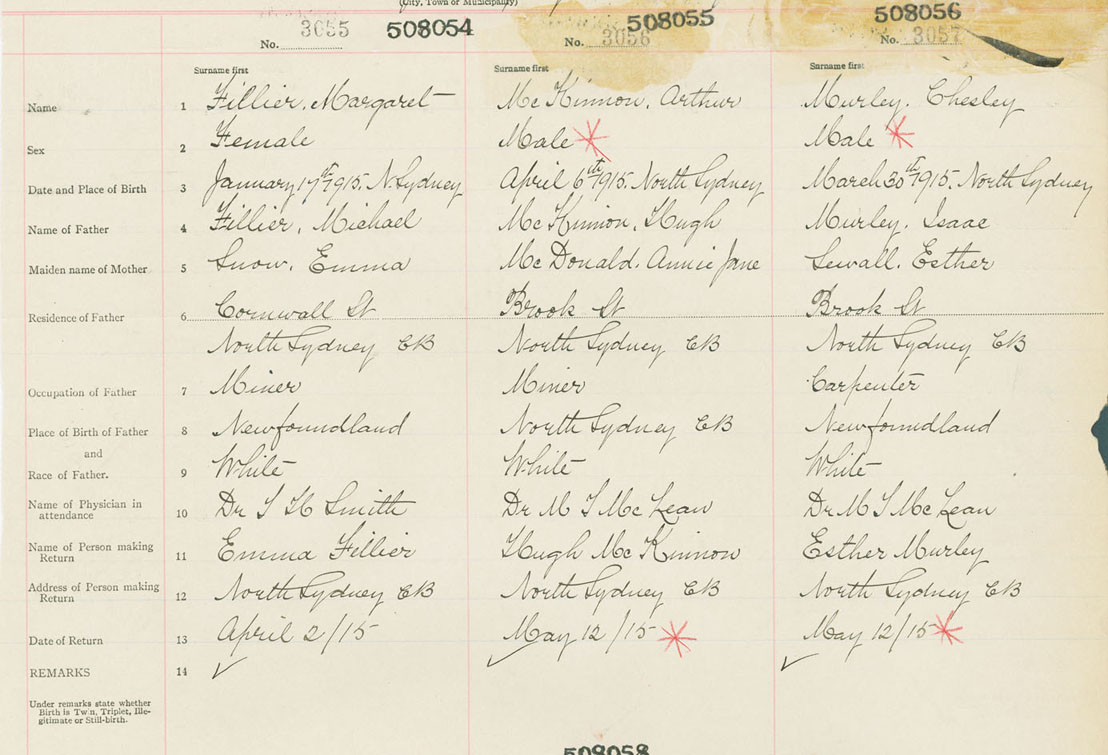 (City, Town or Municipality)
3055 508054 508055 508056
No. No. 3056 No. 3057
Surname first Surname first Surname first
Name 1 Fillier, Margaret Mc Kinnon, Arthur Murley, Chesley
Sex 2 Female Male Male
Date and Place of Birth 3 January 17th 1915. N. Sydney April 6th 1915. North Sydney March 30th 1915. North Sydney
Name of Father 4 Fillier, Michael Mc Kinnon, Hugh Murley, Isaac
Maiden name of Mother 5 Snow, Emma Mc Donald, Annie Jane Sewall, Esther
Residence of Father 6 Cornwall St Brook St Brook St
North Sydney CB North Sydney CB North Sydney CB
Occupation of Father 7 Miner Miner Carpenter
Place of Birth of Father 8 Newfoundland North Sydney CB Newfoundland
and
Race of Father. 9 White White White
Name of Physician in
attendance 10 Dr Smith Dr M Mc Lean Dr M Mc Lean
Name of Person making
Return 11 Emma Fillier Hugh Mc Kinnon Esther Murley
Address of Person making
Return 12 North Sydney CB North Sydney CB North Sydney CB
Date of Return 13 April 2/15 May 12/15 May 12/15
REMARKS 14
Under remarks state whether
Birth is Twin, Triplet, Ille-
gitimate or Still-birth.
508058